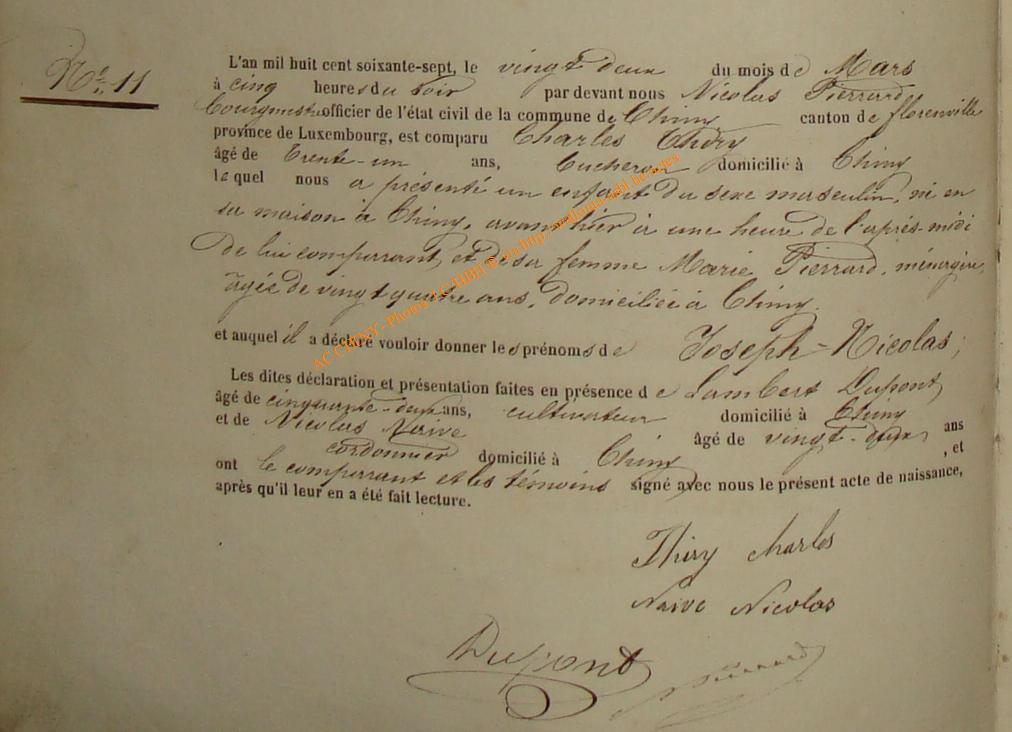 N.º 11
L'an mil huit cent soixante-sept, le vingt deux du mois de Mars
à cinq heures du soir par devant nous Nicolas Pierrard
Bourgmestre officier de l'état civil de la commune de Chiny canton de florenville
province de Luxembourg, est comparu Charles Thiry
âgé de trente-un ans, domicilié à Chiny
lequel nous a présenté un enfant du sexe masculin, né en
sa maison à Chiny, avant hier à une heure de l'après-midi
de lui comparrant, et de sa femme Marie Pierrard, ménagère,
âgée de vingt quatre ans, domiciliée à Chiny.
et auquel il a déclaré vouloir donner les prénoms de Joseph-Nicolas;
Les dites déclaration et présentation faites en présence de Lambert Dupont,
âgé de cinquante-deux ans, cultivateur domicilié à Chiny
et de Nicolas Naive âgé de vingt-deux ans
cordonnier domicilié à Chiny, et
ont le comparrant et les témoins signé avec nous le présent acte de naissance,
après qu'il leur en a été fait lecture.
Thiry Charles
Naive Nicolas
Dupont
Pierrard
AC CHINY - Photos